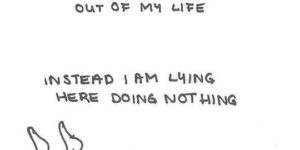 OUT OF MY LIFE
INSTEAD I AM LYING
HERE DOING NOTHING